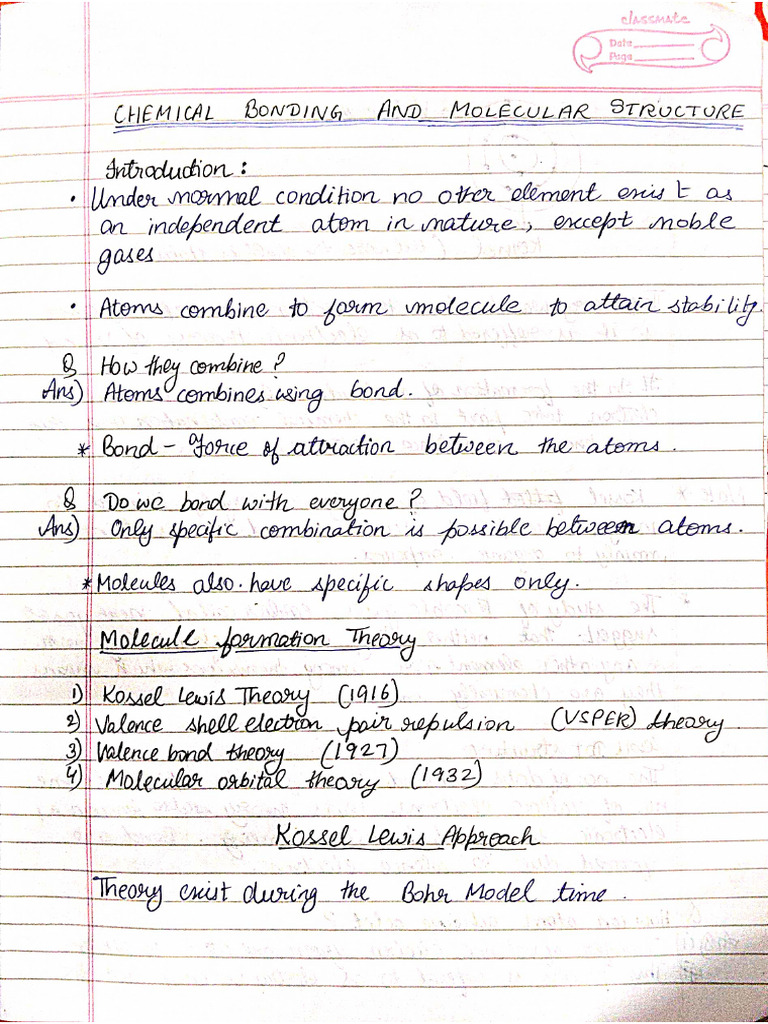 classmate
Date
Page
CHEMICAL BONDING AND MOLECULAR STRUCTURE
Introduction :
• Under normal condition no other element exist as
an independent atom in nature, except noble
gases
• Atoms combine to form molecule to attain stability.
Q How they combine ?
Ans) Atoms combines using bond.
* Bond - Force of attraction between the atoms.
Q Do we bond with everyone ?
Ans) Only specific combination is possible between atoms.
* Molecules also have specific shapes only.
Molecule formation Theory
1) Kossel Lewis Theory (1916)
2) Valence shell electron pair repulsion (VSPER) theory.
3) Valence bond theory (1927)
4) Molecular orbital theory (1932)
Kossel Lewis Approach
Theory exist during the Bohr Model time.